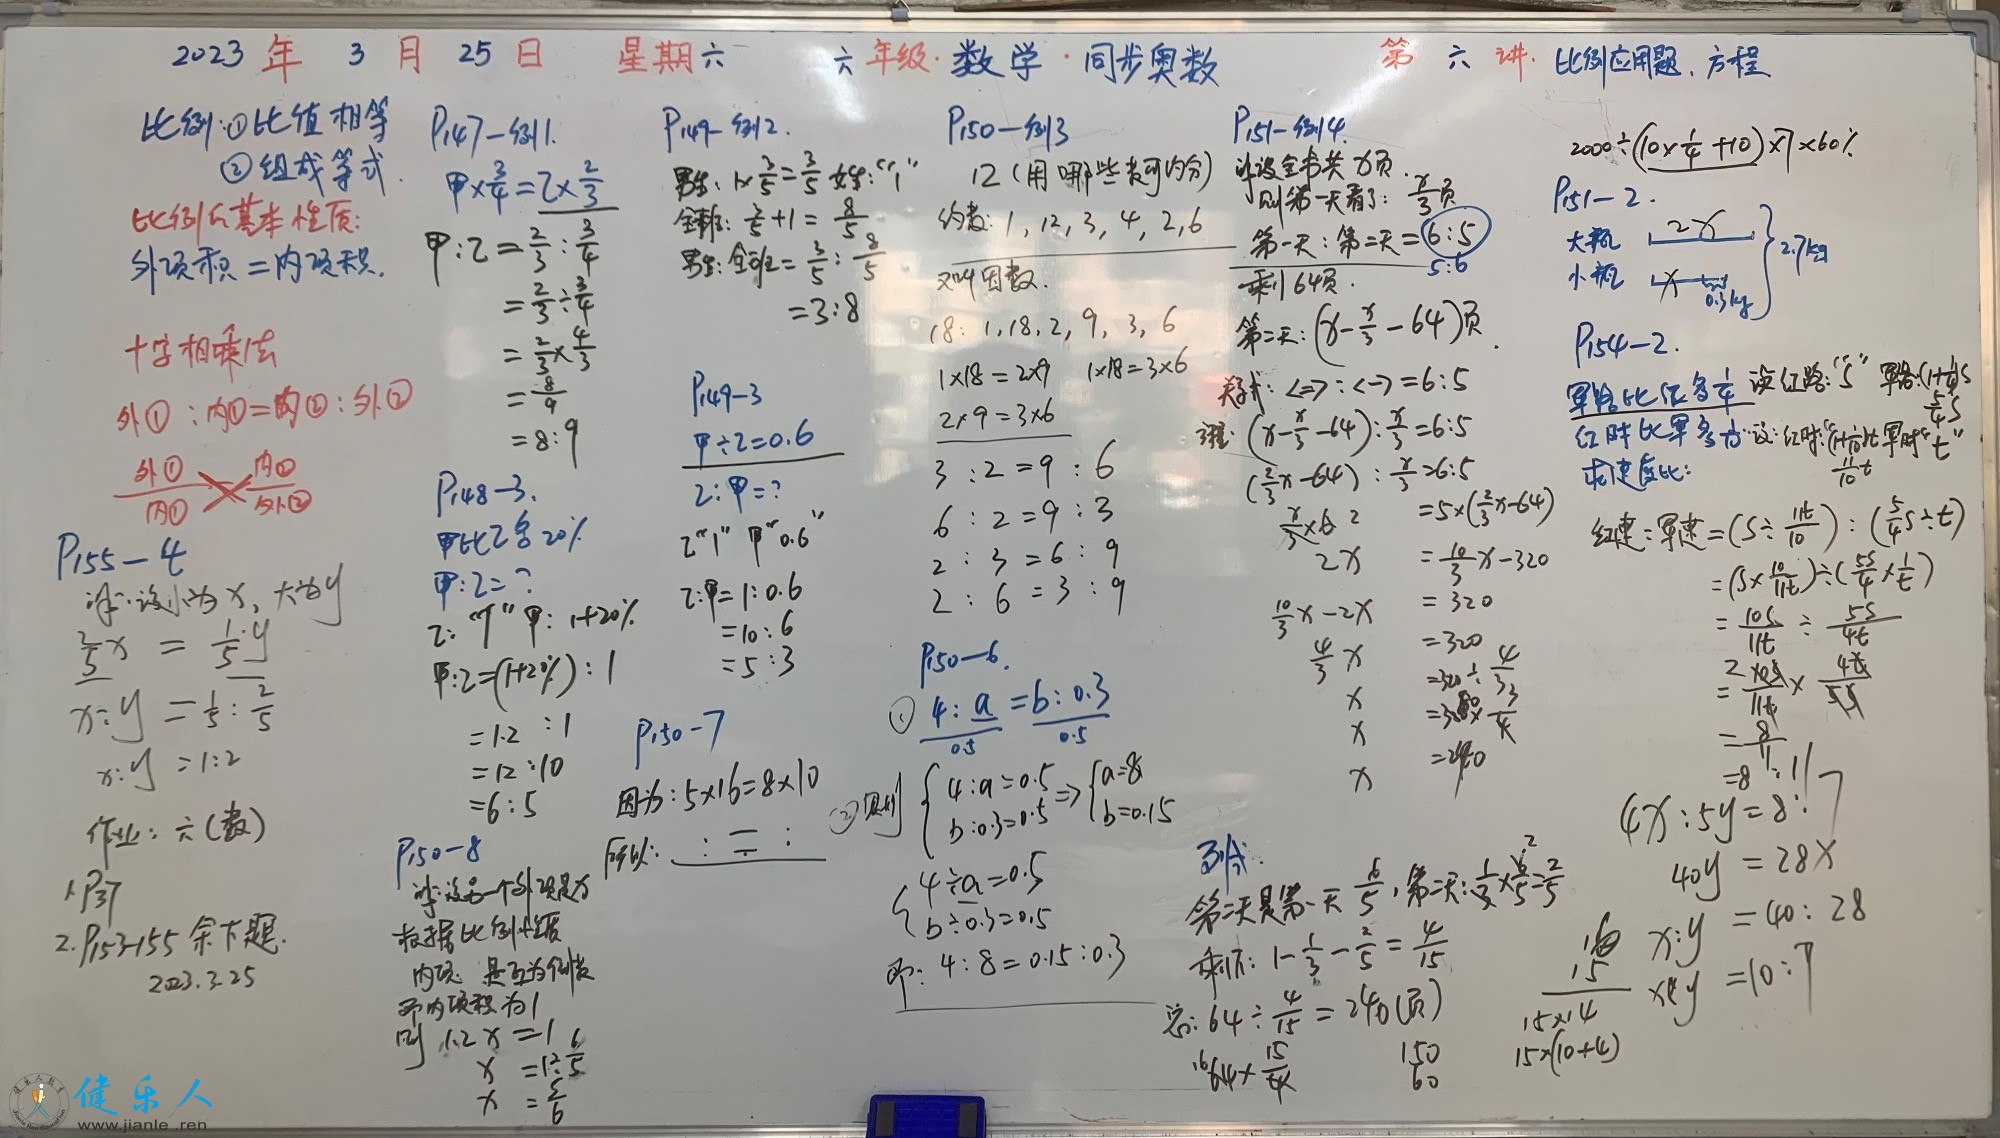 2023 年 3 月 25 日 星期六 六年级·数学·同步奥数 第 六 讲. 比例应用题、方程
比例:①比值相等
②组成等式.
比例的基本性质:
外项积=内项积.
十字相乘法
外①:内①=内②:外②
外① 内②
内① 外②
P155-4
设小为x,大为y
2/5x = 1/5y
x:y = 1/5:2/5
x:y = 1:2
作业:六(数)
1.P37
2.P153-155 余下题.
2023.3.25
P147-例1.
甲×3/4=乙×2/3
甲:乙=2/3:3/4
=2/3÷3/4
=2/3×4/3
=8/9
=8:9
P148-3.
甲比乙多20%
甲:乙=?
乙:"1" 甲:1+20%
甲:乙=(1+20%):1
=1.2:1
=12:10
=6:5
P150-8
解:设另一个外项是x
根据比例性质
内项是互为倒数
即内项积为1
则 1.2x=1
x=1÷6/5
x=5/6
P149-例2.
男生:1×3/5=3/5 女生:"1"
全班:3/5+1=8/5
男生:全班=3/5:8/5
=3:8
P149-3
甲÷乙=0.6
乙:甲=?
乙"1" 甲"0.6"
乙:甲=1:0.6
=10:6
=5:3
P150-7
因为:5×16=8×10
所以: : = :
P150-例3
12(用哪些数可均分)
约数:1,12,3,4,2,6
又叫因数.
18:1,18,2,9,3,6
1×18=2×9 1×18=3×6
2×9=3×6
3:2=9:6
6:2=9:3
2:3=6:9
2:6=3:9
P150-6.
① 4:a=b:0.3
0.5 0.5
② 则 4:a=0.5 => a=8
b:0.3=0.5 b=0.15
4÷a=0.5
b÷0.3=0.5
即:4:8=0.15:0.3
P151-例4.
解设全书共x页.
则第一天看了:x/3页
第一天:第二天=6:5
5:6
剩64页.
第二天:(x-x/3-64)页.
关系式:<二>:<一>=6:5
解:(x-x/3-64):x/3=6:5
(2/3x-64):x/3=6:5
x/3×6 2 =5×(2/3x-64)
2x =10/3x-320
10/3x-2x =320
4/3x =320
x =320÷4/3
x =320×3/4 80
x =240
第二天是第一天6/5,第二天:1/3×6/5=2/5 2
剩下:1-1/3-2/5=4/15
总:64÷4/15=240(页)
16 64×15/4
150
60
2000÷(10×1/4+10)×7×60%
P151-2.
大瓶 2x
小瓶 x 0.3kg
2.7kg
P154-2.
军路比红多1/4 设红路:"S" 军路:(1+1/4)S
5/4S
红时比军多1/10 设:红时:"(1+1/10)t 军时"t"
11/10t
求速度比:
红速:军速=(S÷11t/10):(5/4S÷t)
=(S×10/11t)÷(5S/4×1/t)
=10S/11t÷5S/4t
=2 10S/11t×4t/5S
=8/11
=8:11
4x:5y=8:7
40y=28x
x:y=40:28
x:y=10:7
16
15
15×14
15×(10+4)
健乐人
www.jianle.ren